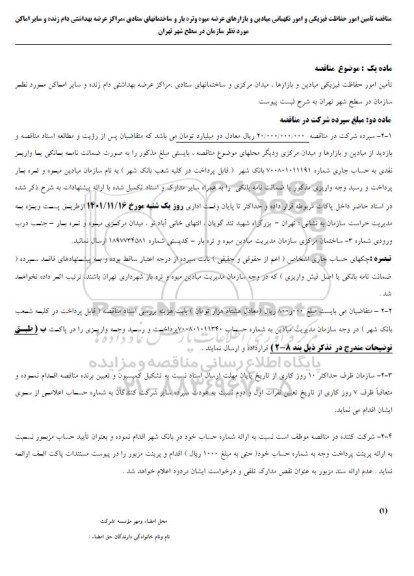 مناقصه تأمین امور حفاظت فیزیکی و امور نگهبانی میادین و بازارهای عرضه میوه وتره بار و ساختمانهای ستادی ،مراکز عرضه بهداشتی دام زنده و سایر اماکن
مورد نظر سازمان در سطح شهر تهران
ماده یک : موضوع مناقصه
تأمین امور حفاظت فیزیکی میادین و بازارها ، میدان مرکزی و ساختمانهای ستادی ،مراکز عرضه بهداشتی دام زنده و سایر اماکن مورد نظر
سازمان در سطح شهر تهران به شرح لیست پیوست
ماده دو: مبلغ سپرده شرکت در مناقصه
۲-۱- سپرده شرکت در مناقصه ۲۰/۰۰۰/۰۰۰/۰۰۰ ریال معادل دو میلیارد تومان می باشد که متقاضیان پس از رؤیت و مطالعه اسناد مناقصه و
بازدید از میادین و بازارها و میدان مرکزی ودیگر محلهای موضوع مناقصه ، بایستی مبلغ مذکور را به صورت ضمانت نامه بمانکی یما واریمز
نقدی به حساب جاری شماره ۷۰۰۸۰۱۰۱۱۱۹۱ بانک شهر ( قابل پرداخت در کلیه شعب بانک شهر ) به نام سازمان میادین میموه و تمره بمار
پرداخت و رسید وجه واریزی مذکور یا ضمانت نامه بانکی را به همراه سایر مدارک و اسناد تکمیل شده با ارائه پیشنهادات به شرح ذکر شده
در اسناد حاضر داخل پاکات مربوطه قرار داده و حداکثر تا پایان وقت اداری روز یک شنبه مورخ ۱۴۰۱/۱۱/۱۶ ازطریمل پسمت ویمژه بمه
مدیریت حراست سازمان به نشانی: تهران – بزرگراه شهید تند گویان ، انتهای خانی آباد نو ، میدان مرکمزی میموه و تمره بمار – جنمب درب
ورودی شماره ۳– ساختمان مرکزی سازمان مدیریت میادین میوه و تره بار – کدپستی شماره ۱۸۹۷۷۳۴۵۸۱ ارسال نمائید.
تبصره :چکهای حساب جاری اشخاص ( اعم از حقوقی و حقیقی ) بابت سپرده از درجه اعتبار ساقط بوده و بمه پیشمنهادهای فاقمد سمپرده (
ضمانت نامه بانکی یا اصل فیش واریزی ) که در وجه سازمان مدیریت میادین میوه و تره بار شهرداری تهران باشند، ترتیب اثمر داده نخواهمد
شد .
۲-۲ – متقاضیان می بایست مبلغ
بانک شهر ) در وجه سازمان مدیریت میادین به شماره حساب ۷۰۰۸۰۱۰۱۱۳۴۰ پرداخت و رسمید وجمه واریمزی را در پاکمت ب ( طبمق
توضیحات مندرج در تذکر ذیل بند ۸-۲ ) قرارداده و ارسال نمایند .
۲-۳– سازمان ظرف حداکثر ۱۰ روز کاری از تاریخ پایان مهلت ارسال اسناد نسبت به تشکیل کمیسون و تعیین برنده مناقصه اقمدام نممموده و
متعاقباً ظرف ۷ روز کاری از تاریخ تعیین نفرات اول و دوم نسبت به عودت سپرده سایر شرکت کنندگان به شماره حساب اعلاممی از سموی
ایشان اقدام می نماید.
۲-۴– شرکت کننده در مناقصه موظف است نسبت به ارائه شماره حساب خود در بانک شهر اقدام نموده و بعنوان تأیید حساب مزبمور نسمبت
به ارائه پرینت پرداخت وجه به شماره حساب خود( حتی به مبلغ ۱۰۰۰ ریال ) اقدام و پرینت مزبور را در پیوست مستندات پاکت المف ارائمه
نماید . عدم ارائه سند مزبور به عنوان نقص مدارک تلقی و درخواست ایشان مردود اعلام خواهد شد .
(۱)
محل امضاء ومهر مؤسسه /شرکت
نام ونام خانوادگی دارندگان حق امضاء :
پایگاه اطلاع رسانی مناقصه ومزایده